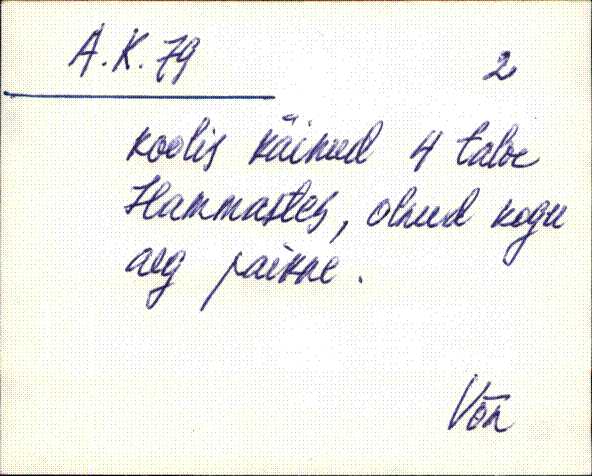 A.K. 79
2
koolis käinud 4 talve
Hammastes, olnud kogu
aeg paikne.
Võn